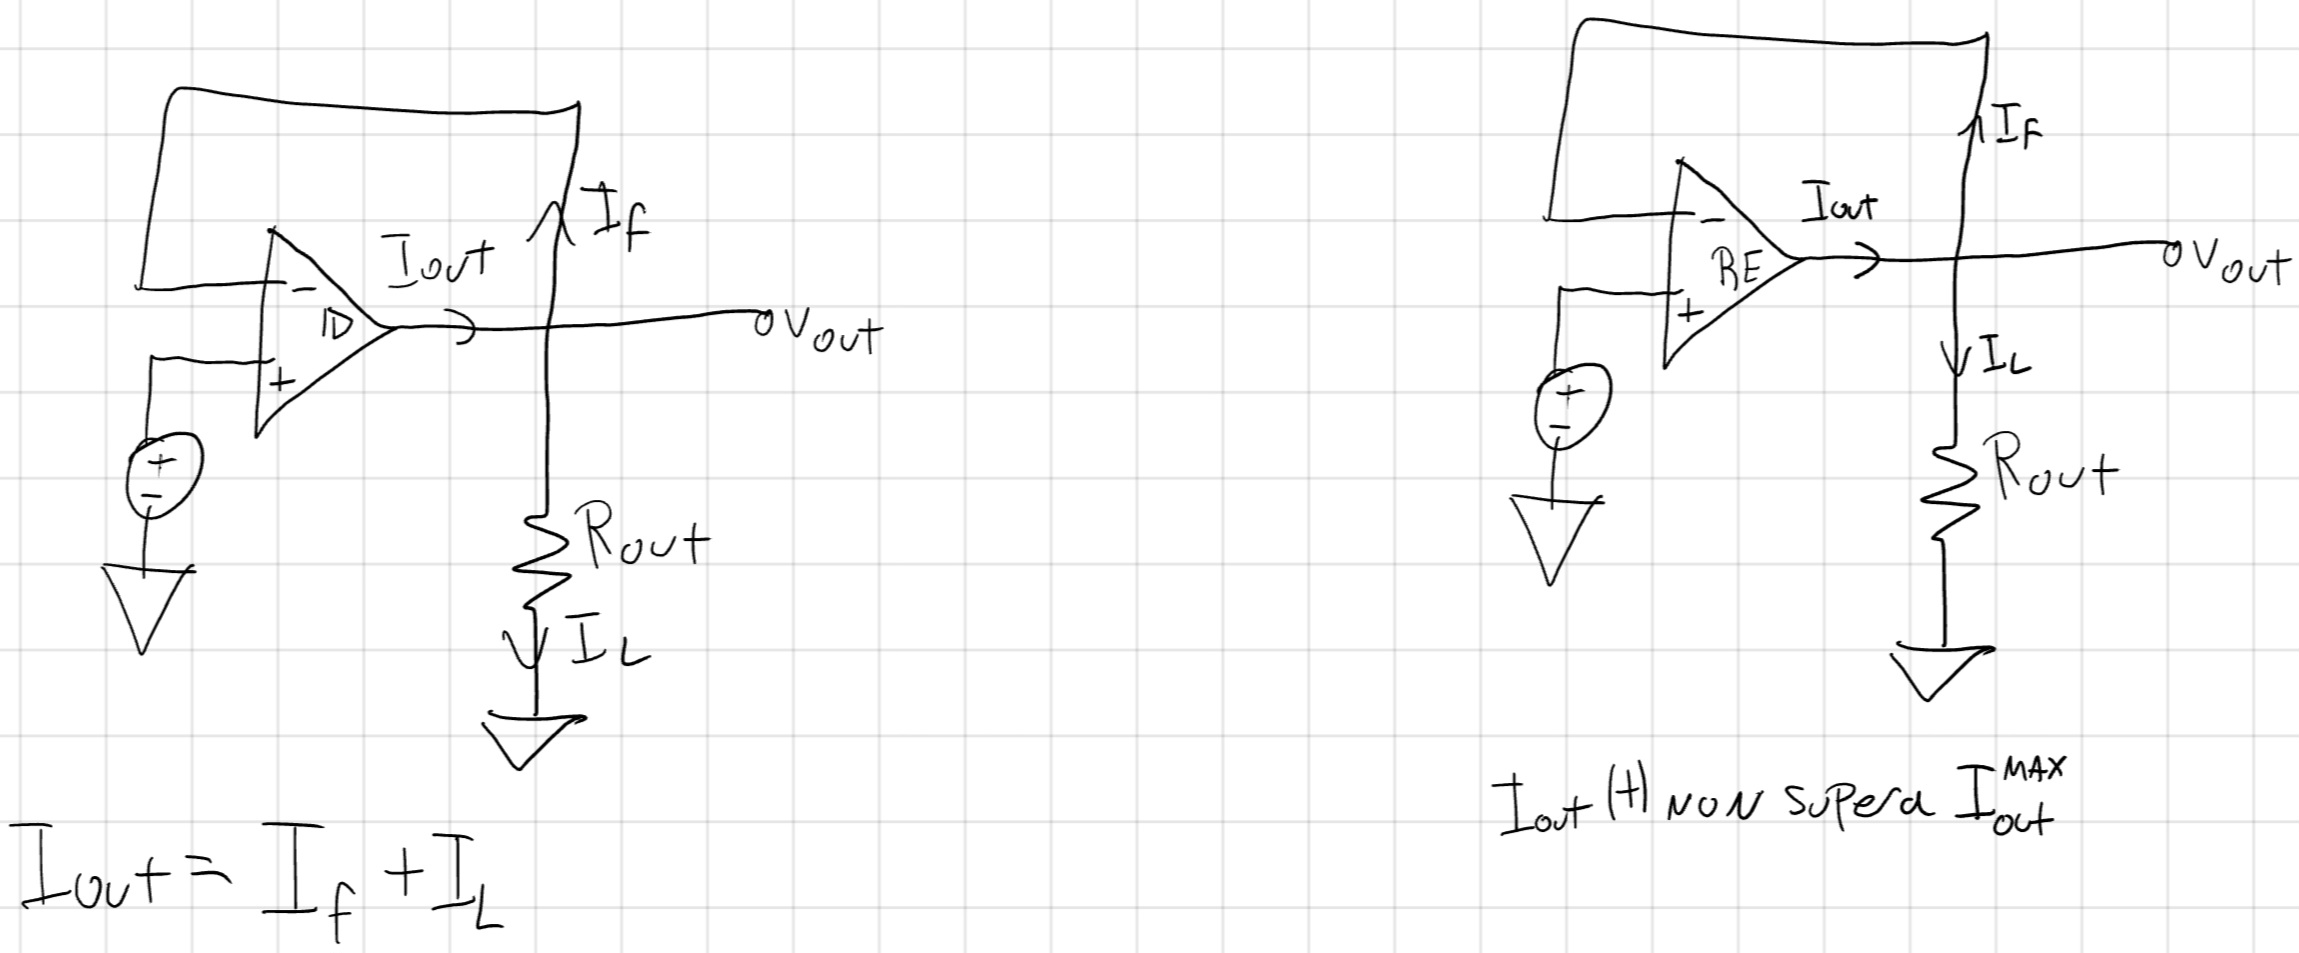 If
Iout
-
ID
+
Vout
+
-
Rout
IL
Iout = If + IL
IF
Iout
-
RE
+
Vout
IL
+
-
Rout
Iout (t) NON supera Iout^MAX